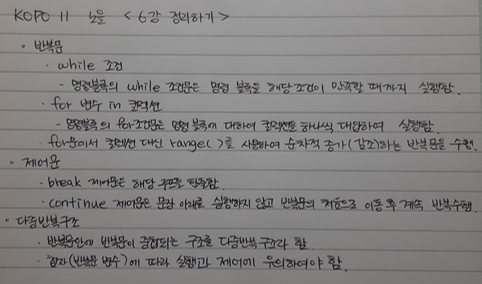 KOPO 11 노을 < 6강 정리하기 >
· 반복문
· while 조건
- 명령블록의 while 조건문은 명령 블록을 해당 조건이 만족할 때까지 실행함.
· for 변수 in 컬렉션
- 명령블록의 for조건문은 명령 블록에 대하여 컬렉션을 하나씩 대입하여 실행함.
· for문에서 컬렉션 대신 range( )를 사용하여 순차적 증가(감소)하는 반복문을 수행.
· 제어문
· break 제어문은 해당 루프를 탈출함.
· continue 제어문은 문장 아래로 실행하지 않고 반복문의 처음으로 이동 후 계속 반복수행.
· 다중반복구조
· 반복문안에 반복문이 중첩되는 구조를 다중반복구조라 함
· 첨자(반복문 변수)에 따라 실행과 제어에 유의하여야 함.